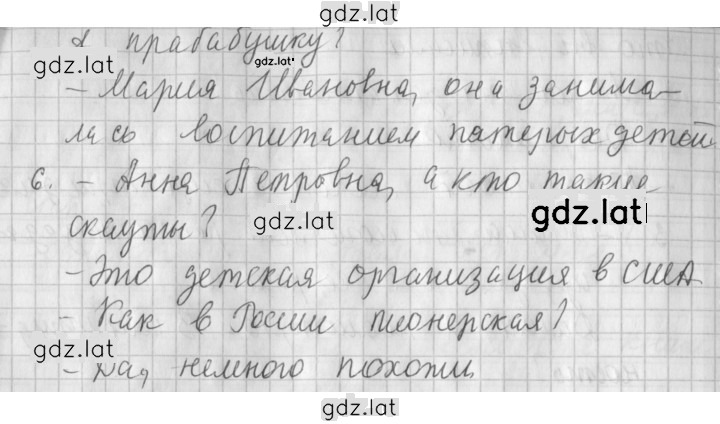 gdz.lat
а прабабушку?
gdz.lat gdz.lat
- Мария Ивановна, она занима-
лась воспитанием пятерых детей
6. - Анна Петровна, а кто такие
скауты? gdz.lat gdz.lat
- Это детская организация в США
- Как в России пионерская?
gdz.lat
- Да, немного похожи
gdz.lat